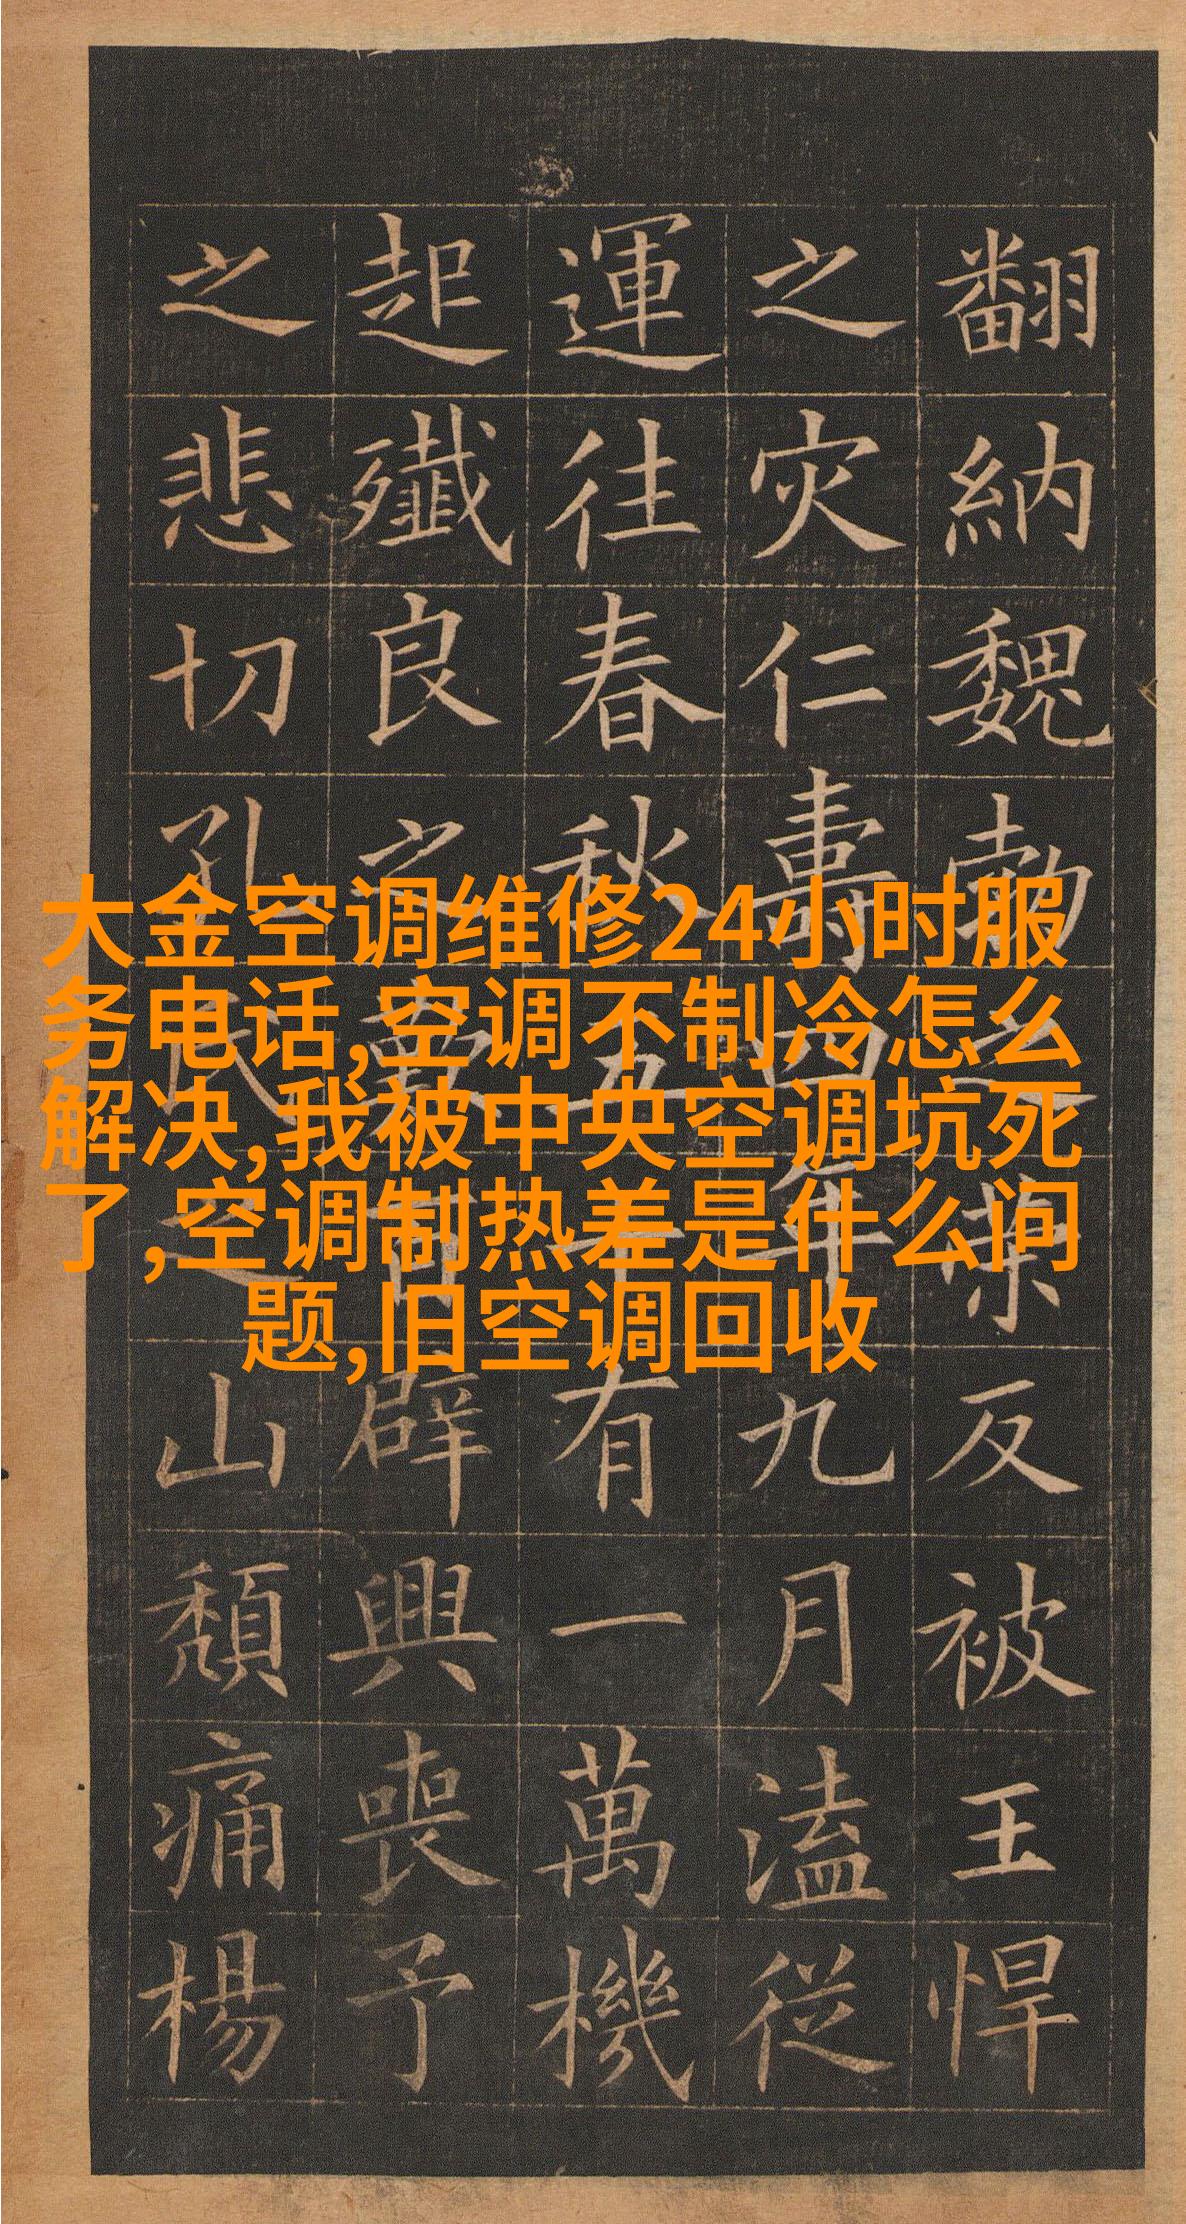 大金空调维修24小时服
务电话,空调不制冷怎么
解决,我被中央空调坑死
了,空调制热差是什么问
题,旧空调回收
翻納魏勃反被王悍
之灾仁壽四年九月溘從
運往春秋五十有一萬機
起殲良之百辟興喪予
之悲切孔氏之山頹痛楊